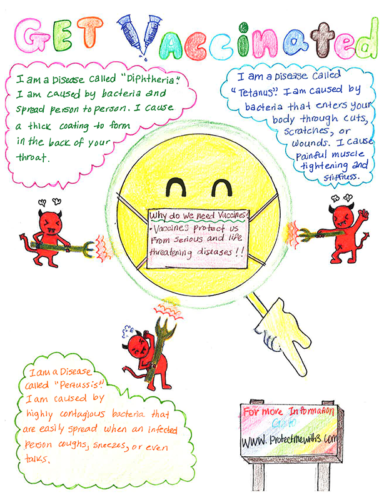 GET Vaccinated
I am a Disease called "Diphtheria".
I am caused by bacteria and
spread person to person. I cause
a thick coating to form
in the back of your
throat.
I am a Disease called
"Tetanus". I am caused by
bacteria that enters your
body through cuts,
scratches, or
wounds. I cause
Painful muscle
tightening and
stiffness.
Why do we need Vaccines?
• Vaccines protect us
From serious and life
threatening diseases!!
I am a Disease
called "Pertussis".
I am caused by
highly contagious bacteria that
are easily spread when an infected
Person coughs, sneezes, or even
talks.
For more Information
Go to
www.protectmewith3.com